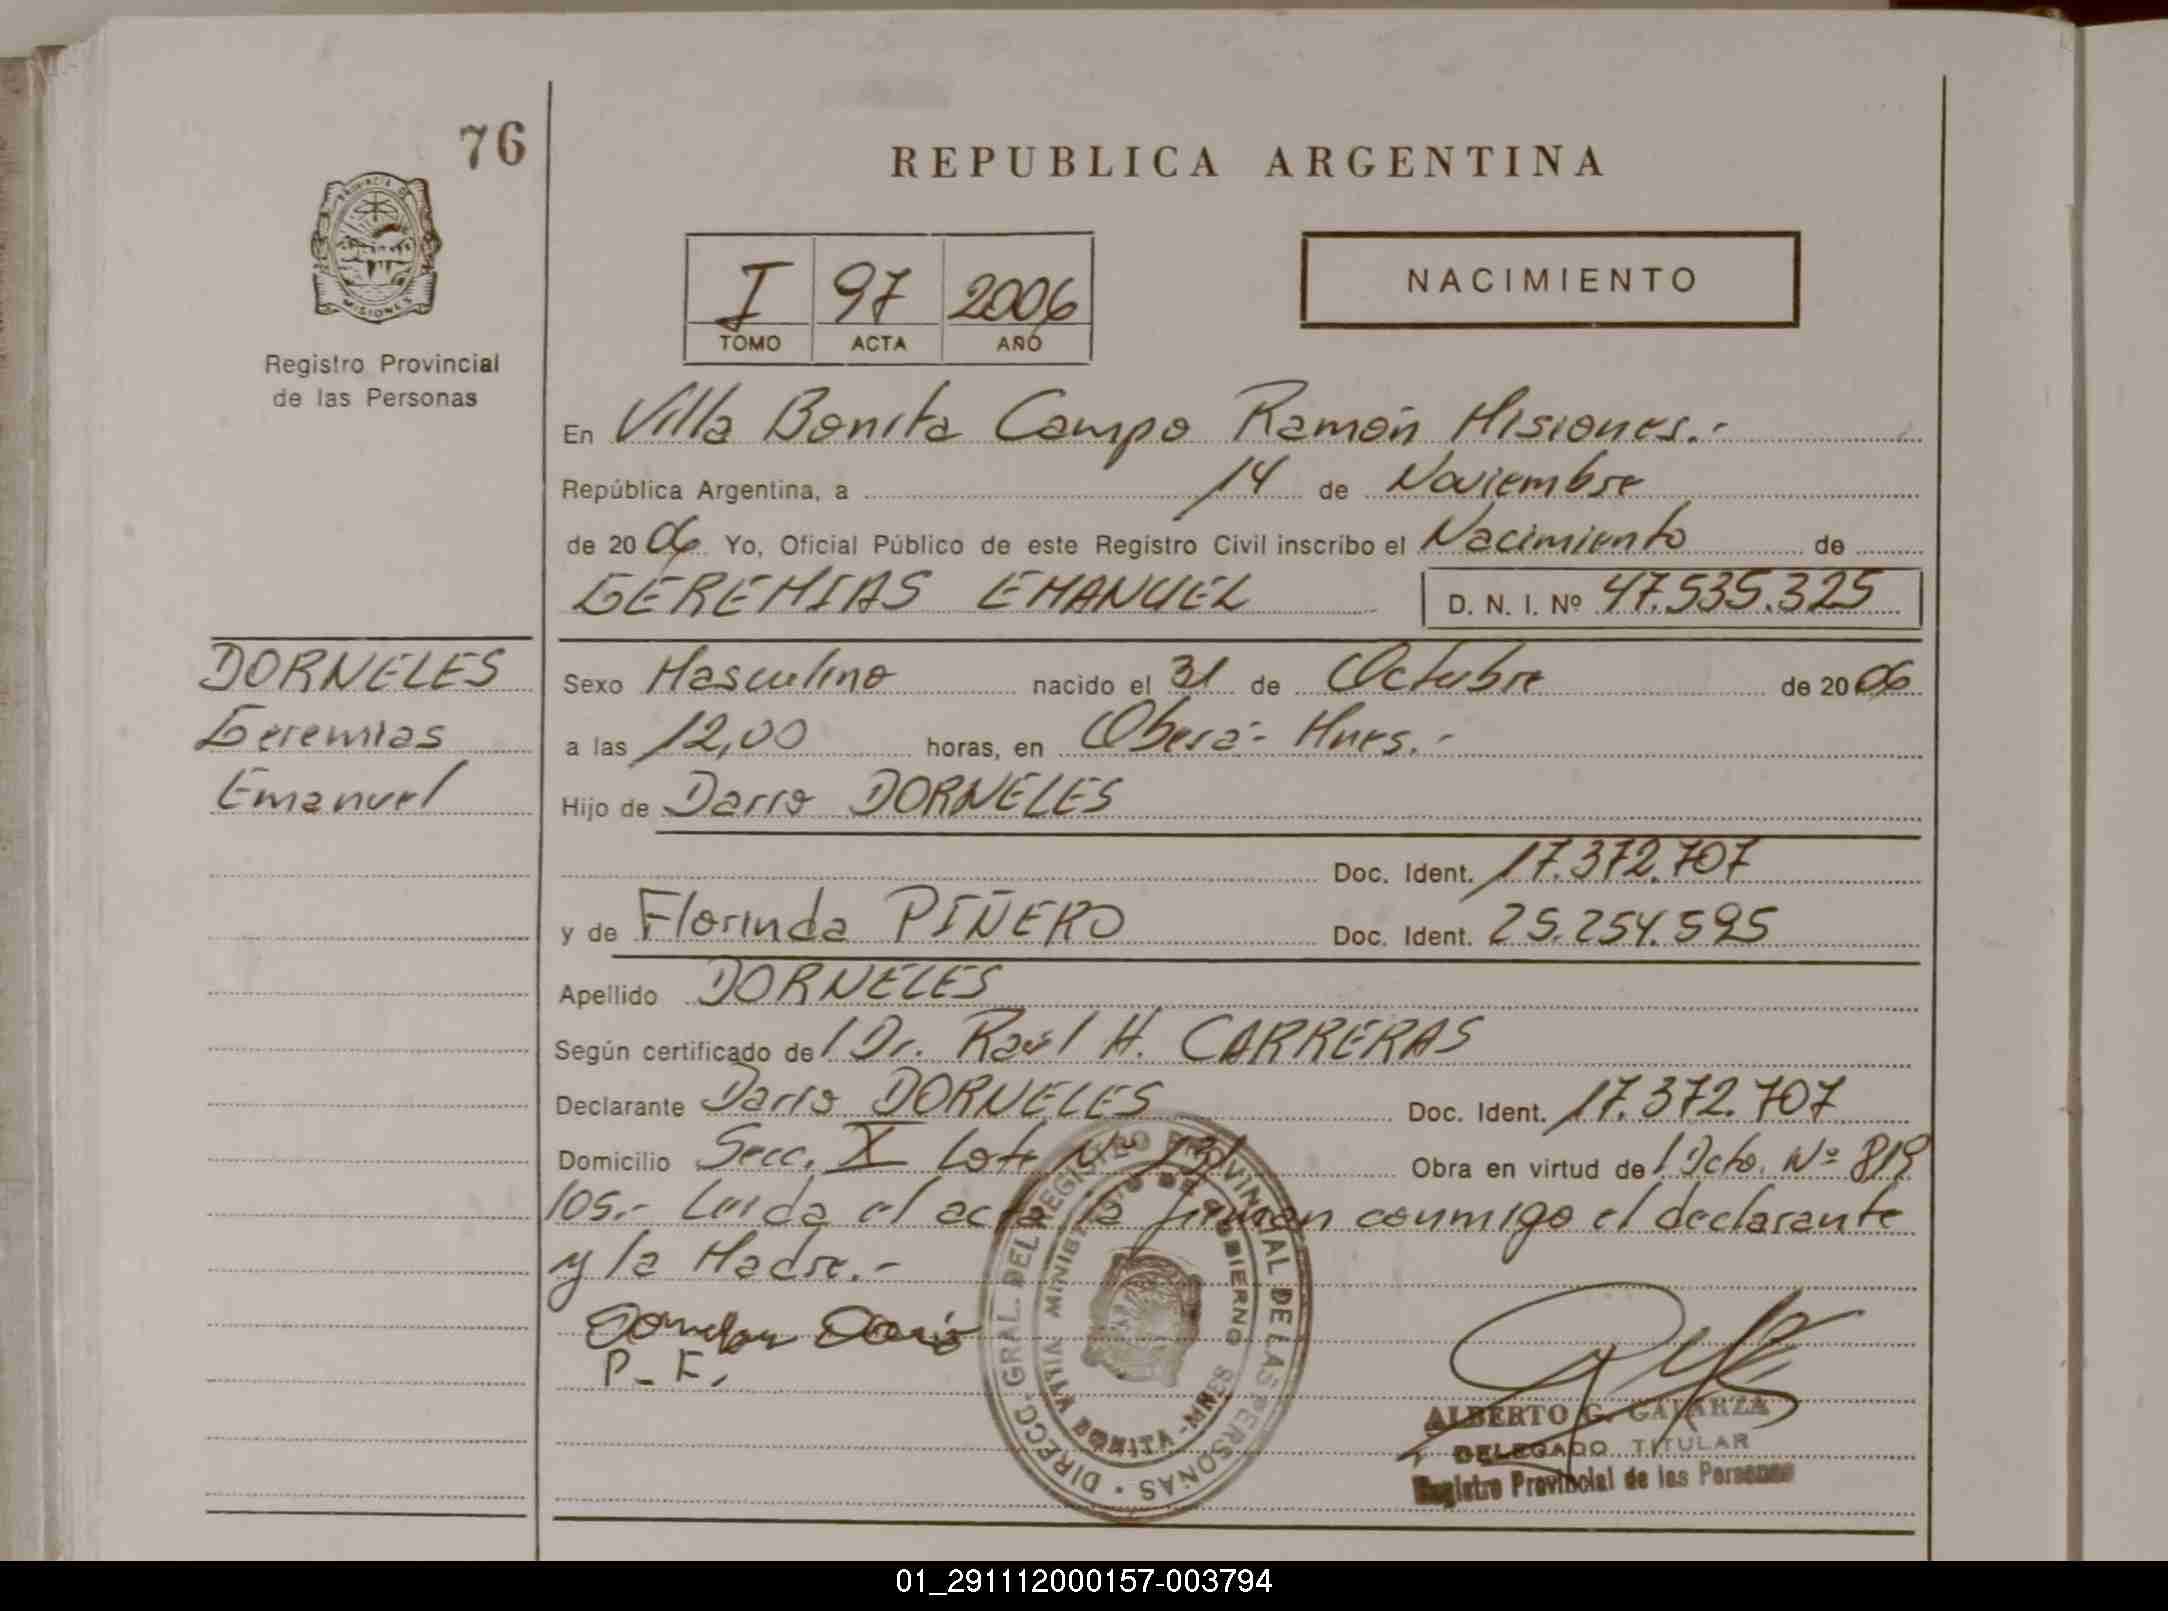 76
REPUBLICA ARGENTINA
PROVINCIA DE
MISIONES
Registro Provincial
de las Personas
I 97 2006
TOMO ACTA AÑO
NACIMIENTO
En Villa Bonita Campo Ramón Misiones.-
República Argentina, a 14 de Noviembre
de 20 06 Yo, Oficial Público de este Registro Civil inscribo el Nacimiento de
GEREMIAS EMANUEL D. N. I. Nº 47.535.325
DORNELES
Geremias
Emanuel
Sexo Masculino nacido el 31 de Octubre de 20 06
a las 12,00 horas, en Oberá - Mnes.-
Hijo de Dario DORNELES
Doc. Ident. 17.372.707
y de Florinda PIÑERO Doc. Ident. 25.254.595
Apellido DORNELES
Según certificado de l Dr. Raúl H. CARRERAS
Declarante Dario DORNELES Doc. Ident. 17.372.707
Domicilio Secc. X Lote Nº 131 Obra en virtud de l Dcto. Nº 819
105.- Leida el acta la firman conmigo el declarante
y la Madre.-
Dorneles Dario
P. F.
DIRECC. GRAL. DEL REGISTRO PROVINCIAL DE LAS PERSONAS
MINISTERIO DE GOBIERNO
VILLA BONITA - MNES
ALBERTO G. GALARZA
DELEGADO TITULAR
Registro Provincial de las Personas
01_291112000157-003794